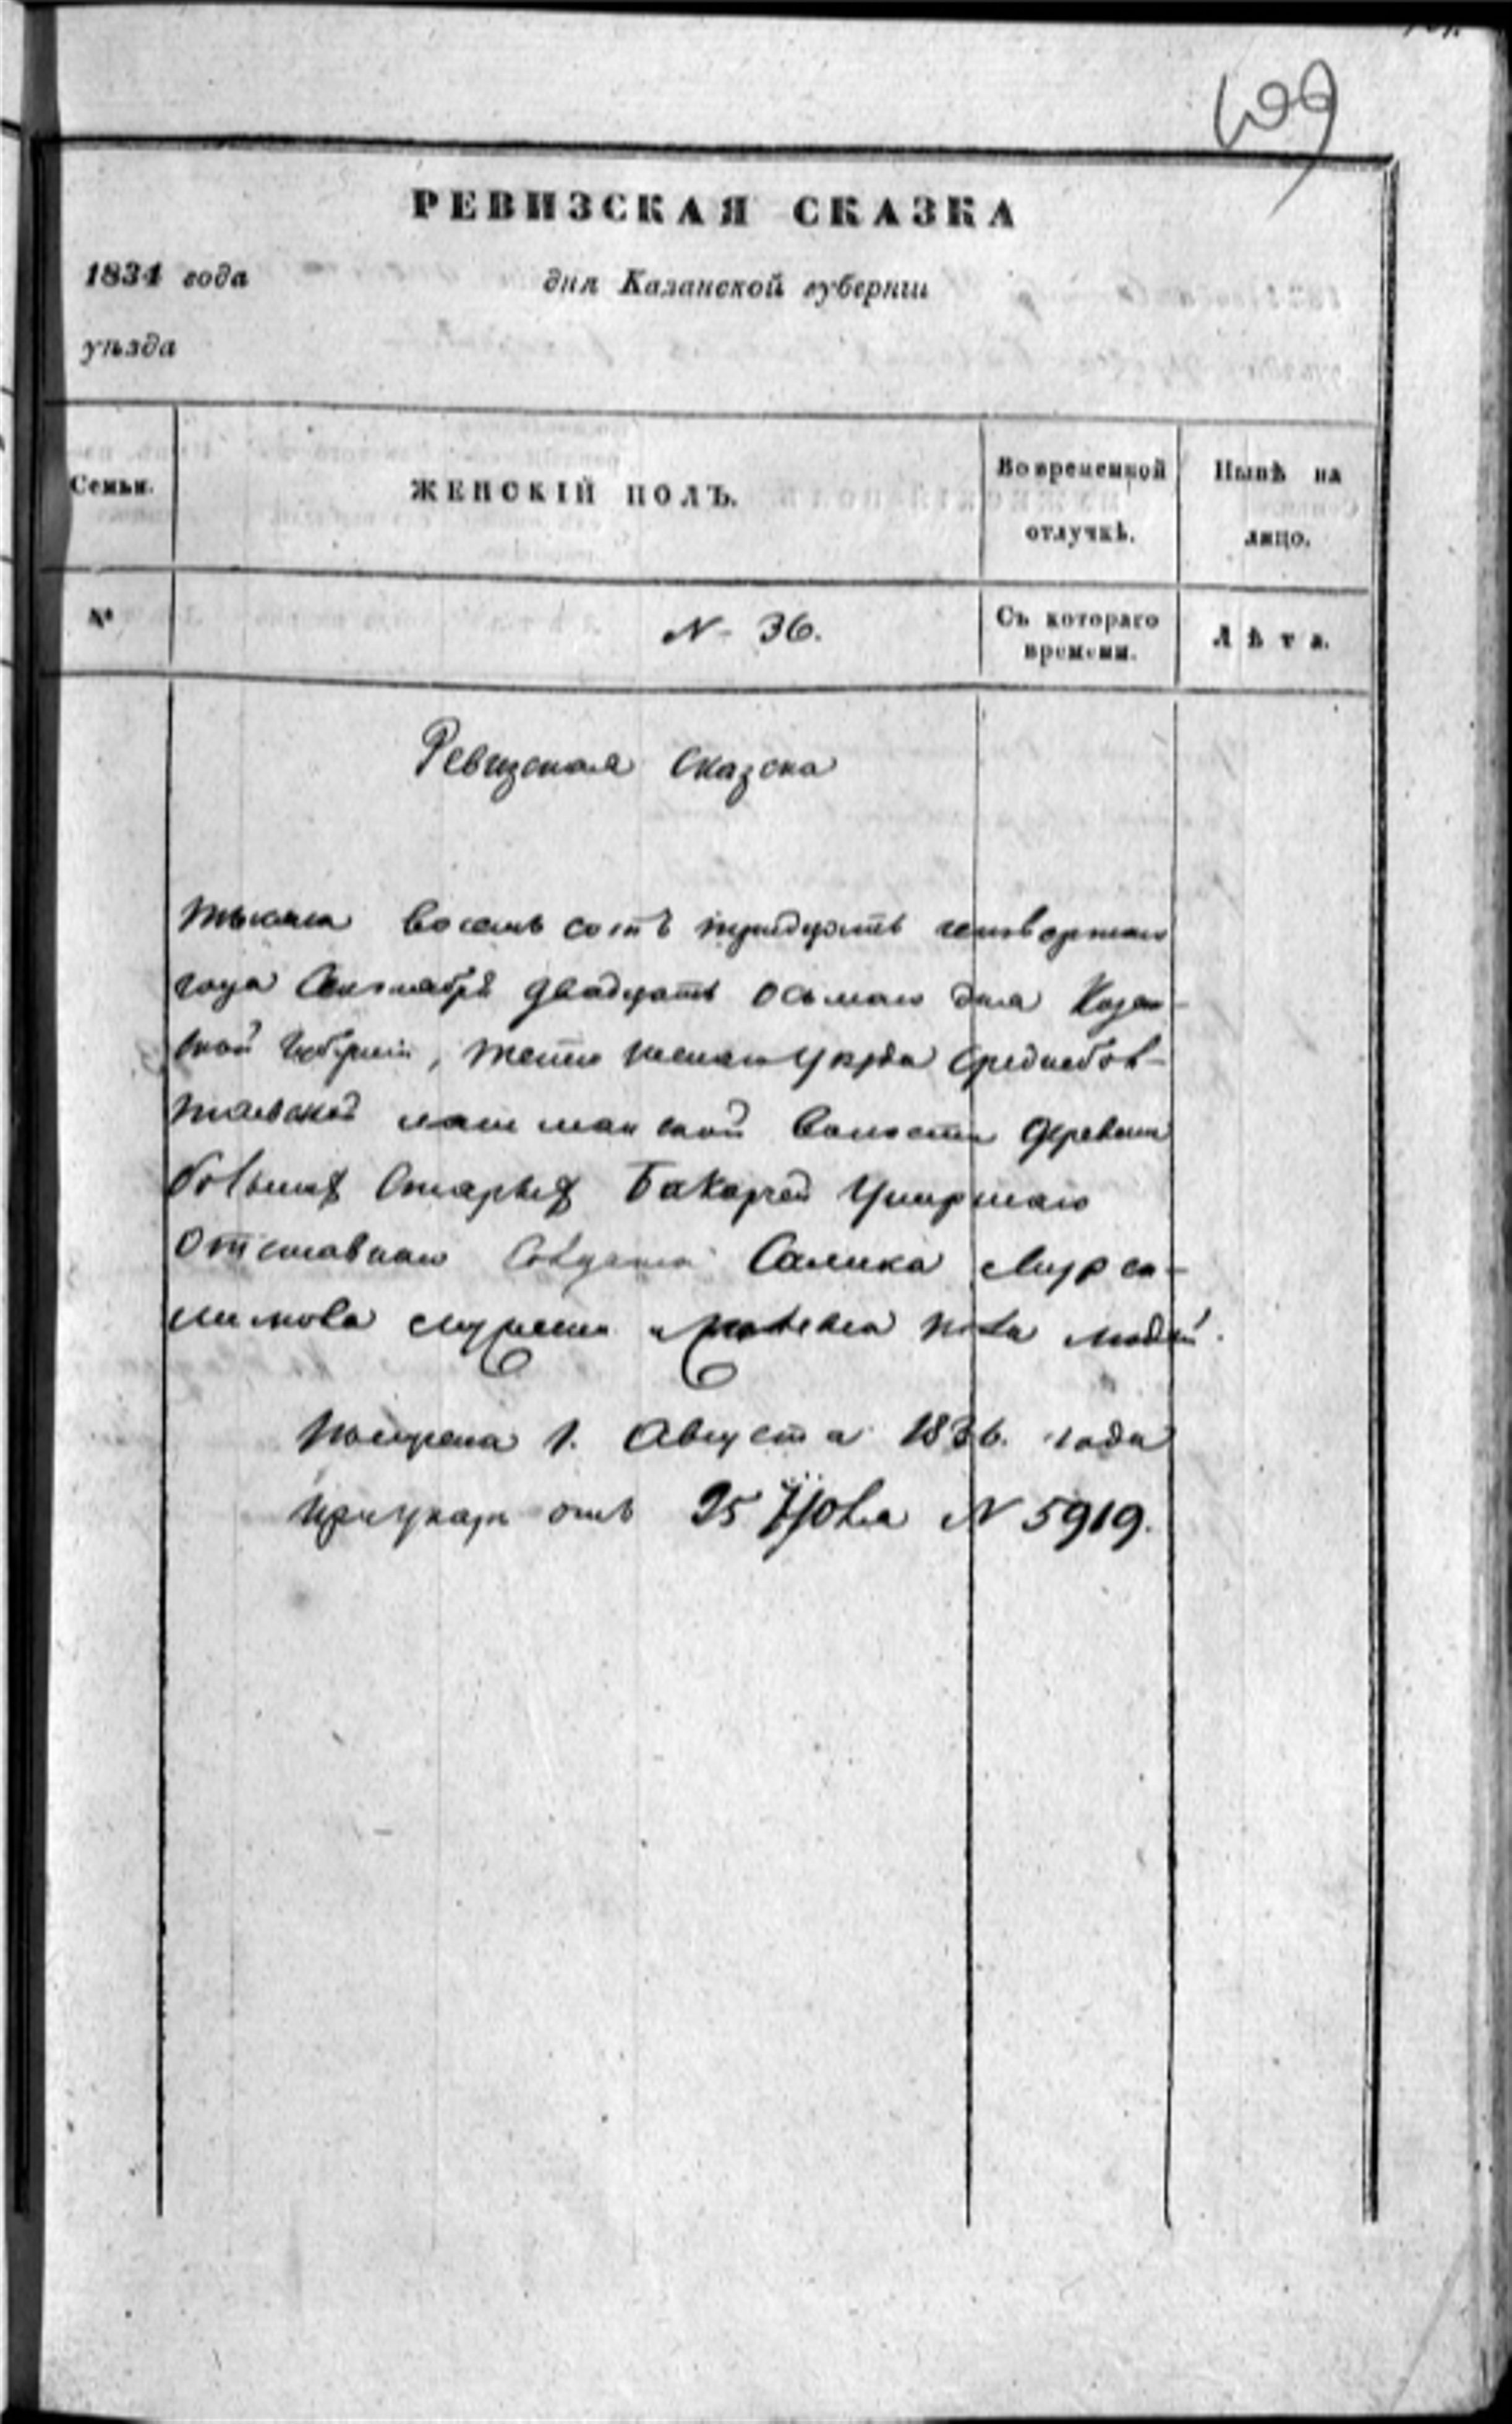 609
РЕВИЗСКАЯ СКАЗКА
1834 года дня Казанской губернии
уѣзда
Семьи.
ЖЕНСКІЙ ПОЛЪ.
Во временной отлучкѣ.
Нынѣ на лицо.
№
N 36.
Съ котораго времени.
Лѣта.
Ревизская Сказска
тысяча восемь сотъ тридцать четвертаго
года Сентября двадцать осьмаго дня Казан-
ской Губерніи, уѣзда
лашманской волости деревни
большихъ Старыхъ Умершаго
отставнаго Солдата Салика Мурса-
лимова мужеска и женска пола людей.
Получена 1. Августа 1836. года
при указе отъ 25 Іюля N 5919.